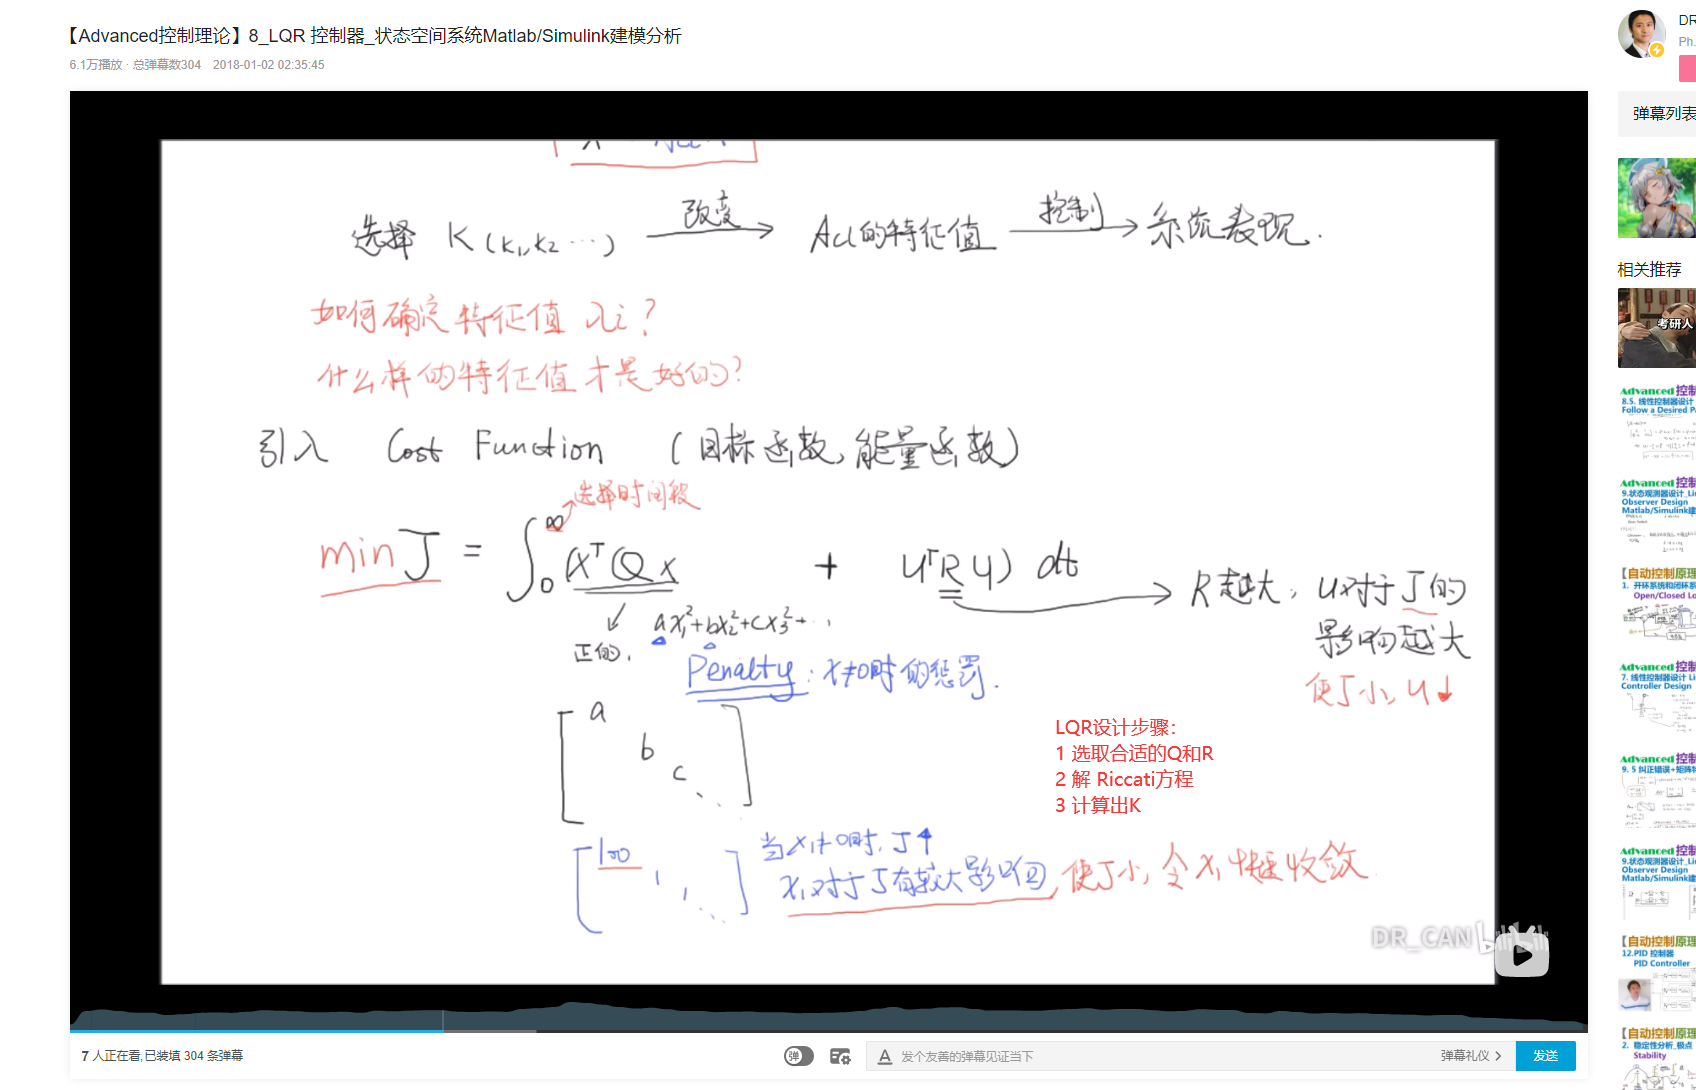 【Advanced控制理论】8_LQR 控制器_状态空间系统Matlab/Simulink建模分析
6.1万播放 · 总弹幕数304 2018-01-02 02:35:45
选择 K (k1,k2 ⋯) 改变 Acl的特征值 控制 系统表现.
如何确定特征值 λi?
什么样的特征值才是好的?
引入 Cost Function (目标函数,能量函数)
选择时间段
min J = ∫0 ∞ (xᵀQx + uᵀRu) dt
R越大, u对于J的
影响越大
使J小, u↓
ax1²+bx2²+cx3²+⋯,
正的,
Penalty: x≠0时的惩罚.
a
b
c
LQR设计步骤：
1 选取合适的Q和R
2 解 Riccati方程
3 计算出K
100
1
1
当x1≠0时, J↑
x1对于J有较大影响, 使J小, 令x1快速收敛
DR_CAN
7 人正在看,已装填 304 条弹幕
弹
发个友善的弹幕见证当下
弹幕礼仪 >
发送
DR
Ph.
弹幕列表
相关推荐
考研人
Advanced 控制
8.5. 线性控制器设计
Follow a Desired P
Advanced 控制
9.状态观测器设计_Li
Observer Design
Matlab/Simulink建
【自动控制原理
1. 开环系统和闭环系
Open/Closed Lo
Advanced 控制
7. 线性控制器设计 Li
Controller Design
Advanced 控制
9. 5 纠正错误+矩阵
Advanced 控制
9.状态观测器设计_Li
Observer Design
Matlab/Simulink建
【自动控制原理
12.PID 控制器
PID Controller
【自动控制原理
2. 稳定性分析_极点
Stability